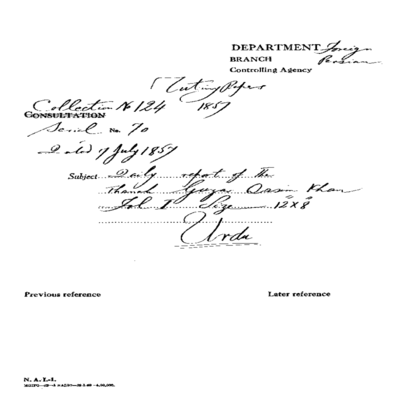 DEPARTMENT Foreign
BRANCH Persian
Controlling Agency
Mutiny Papers
Collection No 124 1857
CONSULTATION
Serial No. 70
Dated 9 July 1857
Subject Daily report of the
Thanah Guzar Qasim Khan
Fol. 1 Size 12" x 8"
Urdu
Previous reference
Later reference
N. A. I.-1.